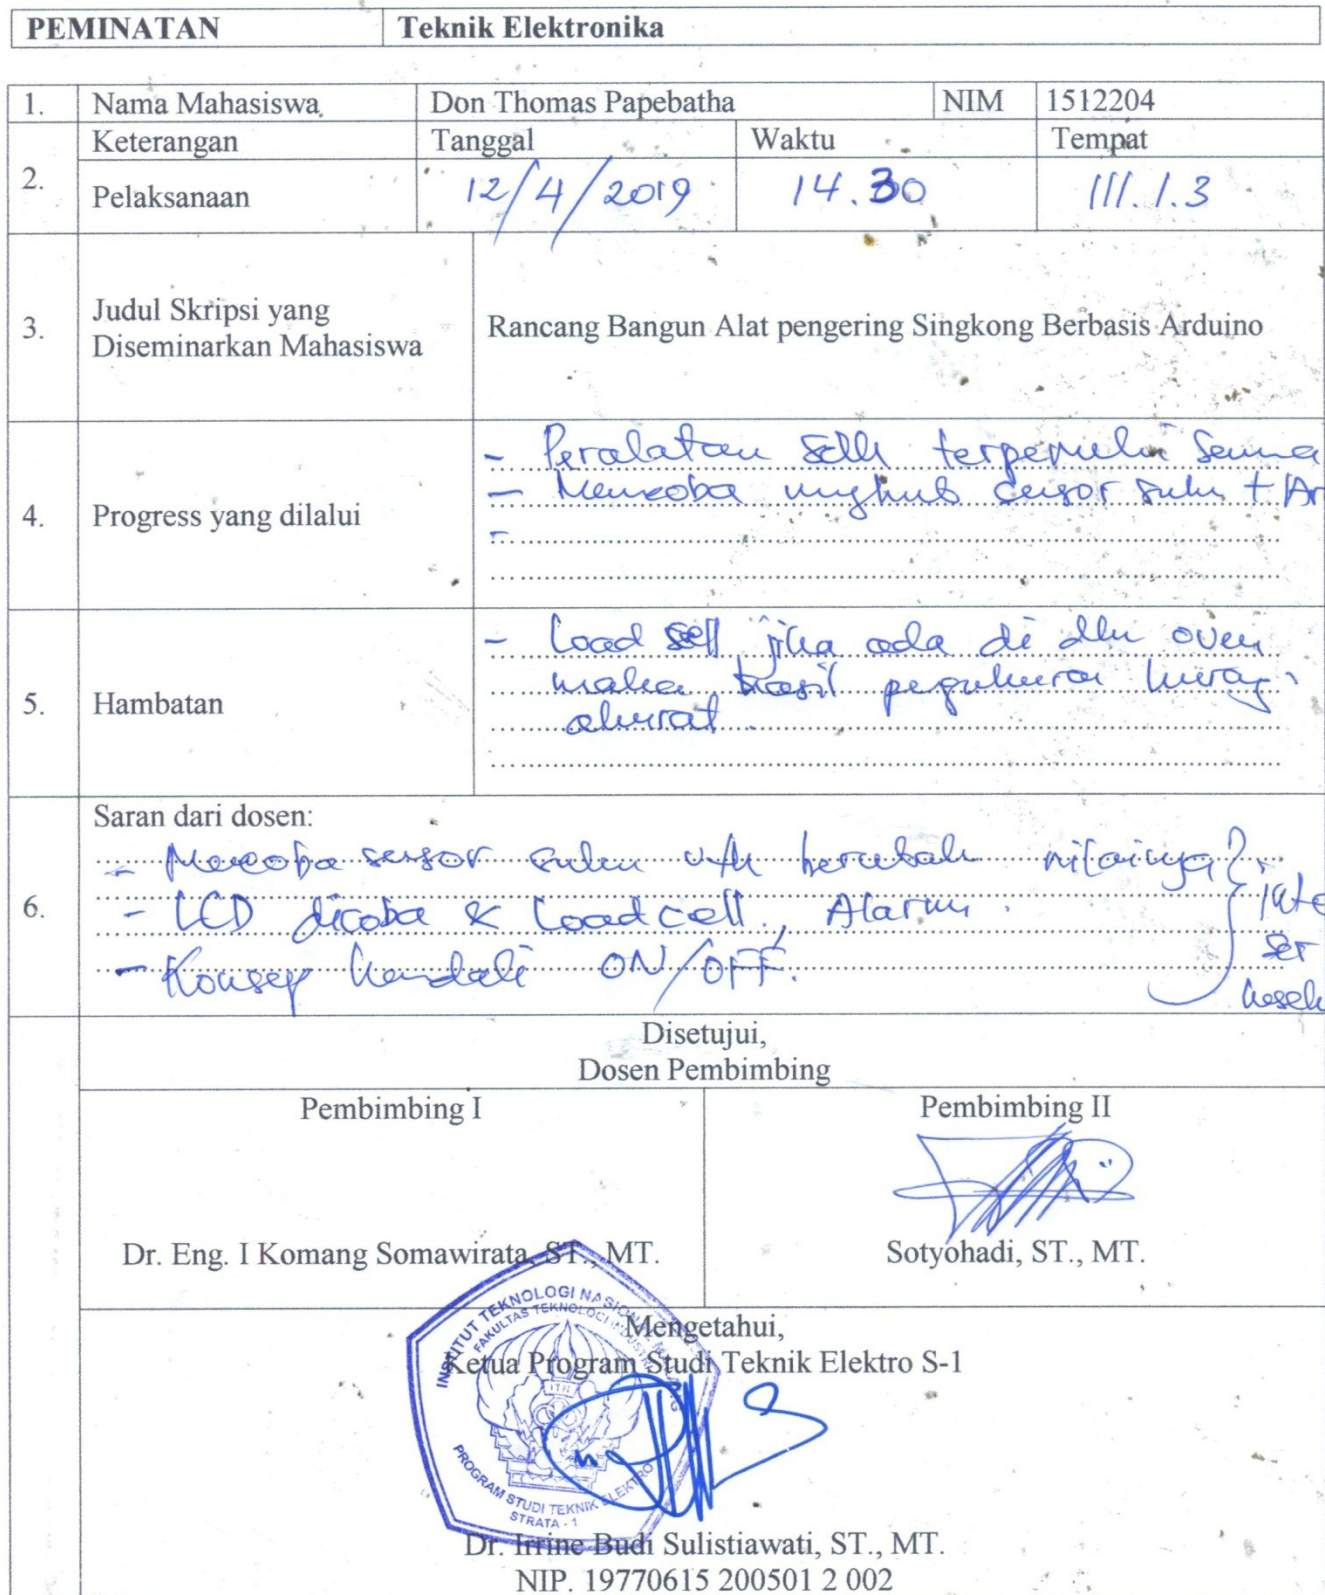 PEMINATAN Teknik Elektronika
1. Nama Mahasiswa Don Thomas Papebatha NIM 1512204
2. Keterangan Tanggal Waktu Tempat
Pelaksanaan 12/4/2019 14.30 III.1.3
3. Judul Skripsi yang
Diseminarkan Mahasiswa
Rancang Bangun Alat pengering Singkong Berbasis Arduino
4. Progress yang dilalui
- Peralatan sdh terpenuhi semua
- Mencoba menghub sensor suhu + Ar
-
5. Hambatan
- Load sell jika ada di dlm oven
maka hasil pegukuran kurang
akurat.
6. Saran dari dosen:
- Mencoba sensor suhu utk berubah nilainya
- LCD dicoba & Loadcell, Alarm.
- Konsep kendali ON/OFF.
Disetujui,
Dosen Pembimbing
Pembimbing I Pembimbing II
Dr. Eng. I Komang Somawirata, ST., MT. Sotyohadi, ST., MT.
Mengetahui,
Ketua Program Studi Teknik Elektro S-1
INSTITUT TEKNOLOGI NASIONAL MALANG
FAKULTAS TEKNOLOGI INDUSTRI
PROGRAM STUDI TEKNIK ELEKTRO
STRATA - 1
Dr. Irrine Budi Sulistiawati, ST., MT.
NIP. 19770615 200501 2 002